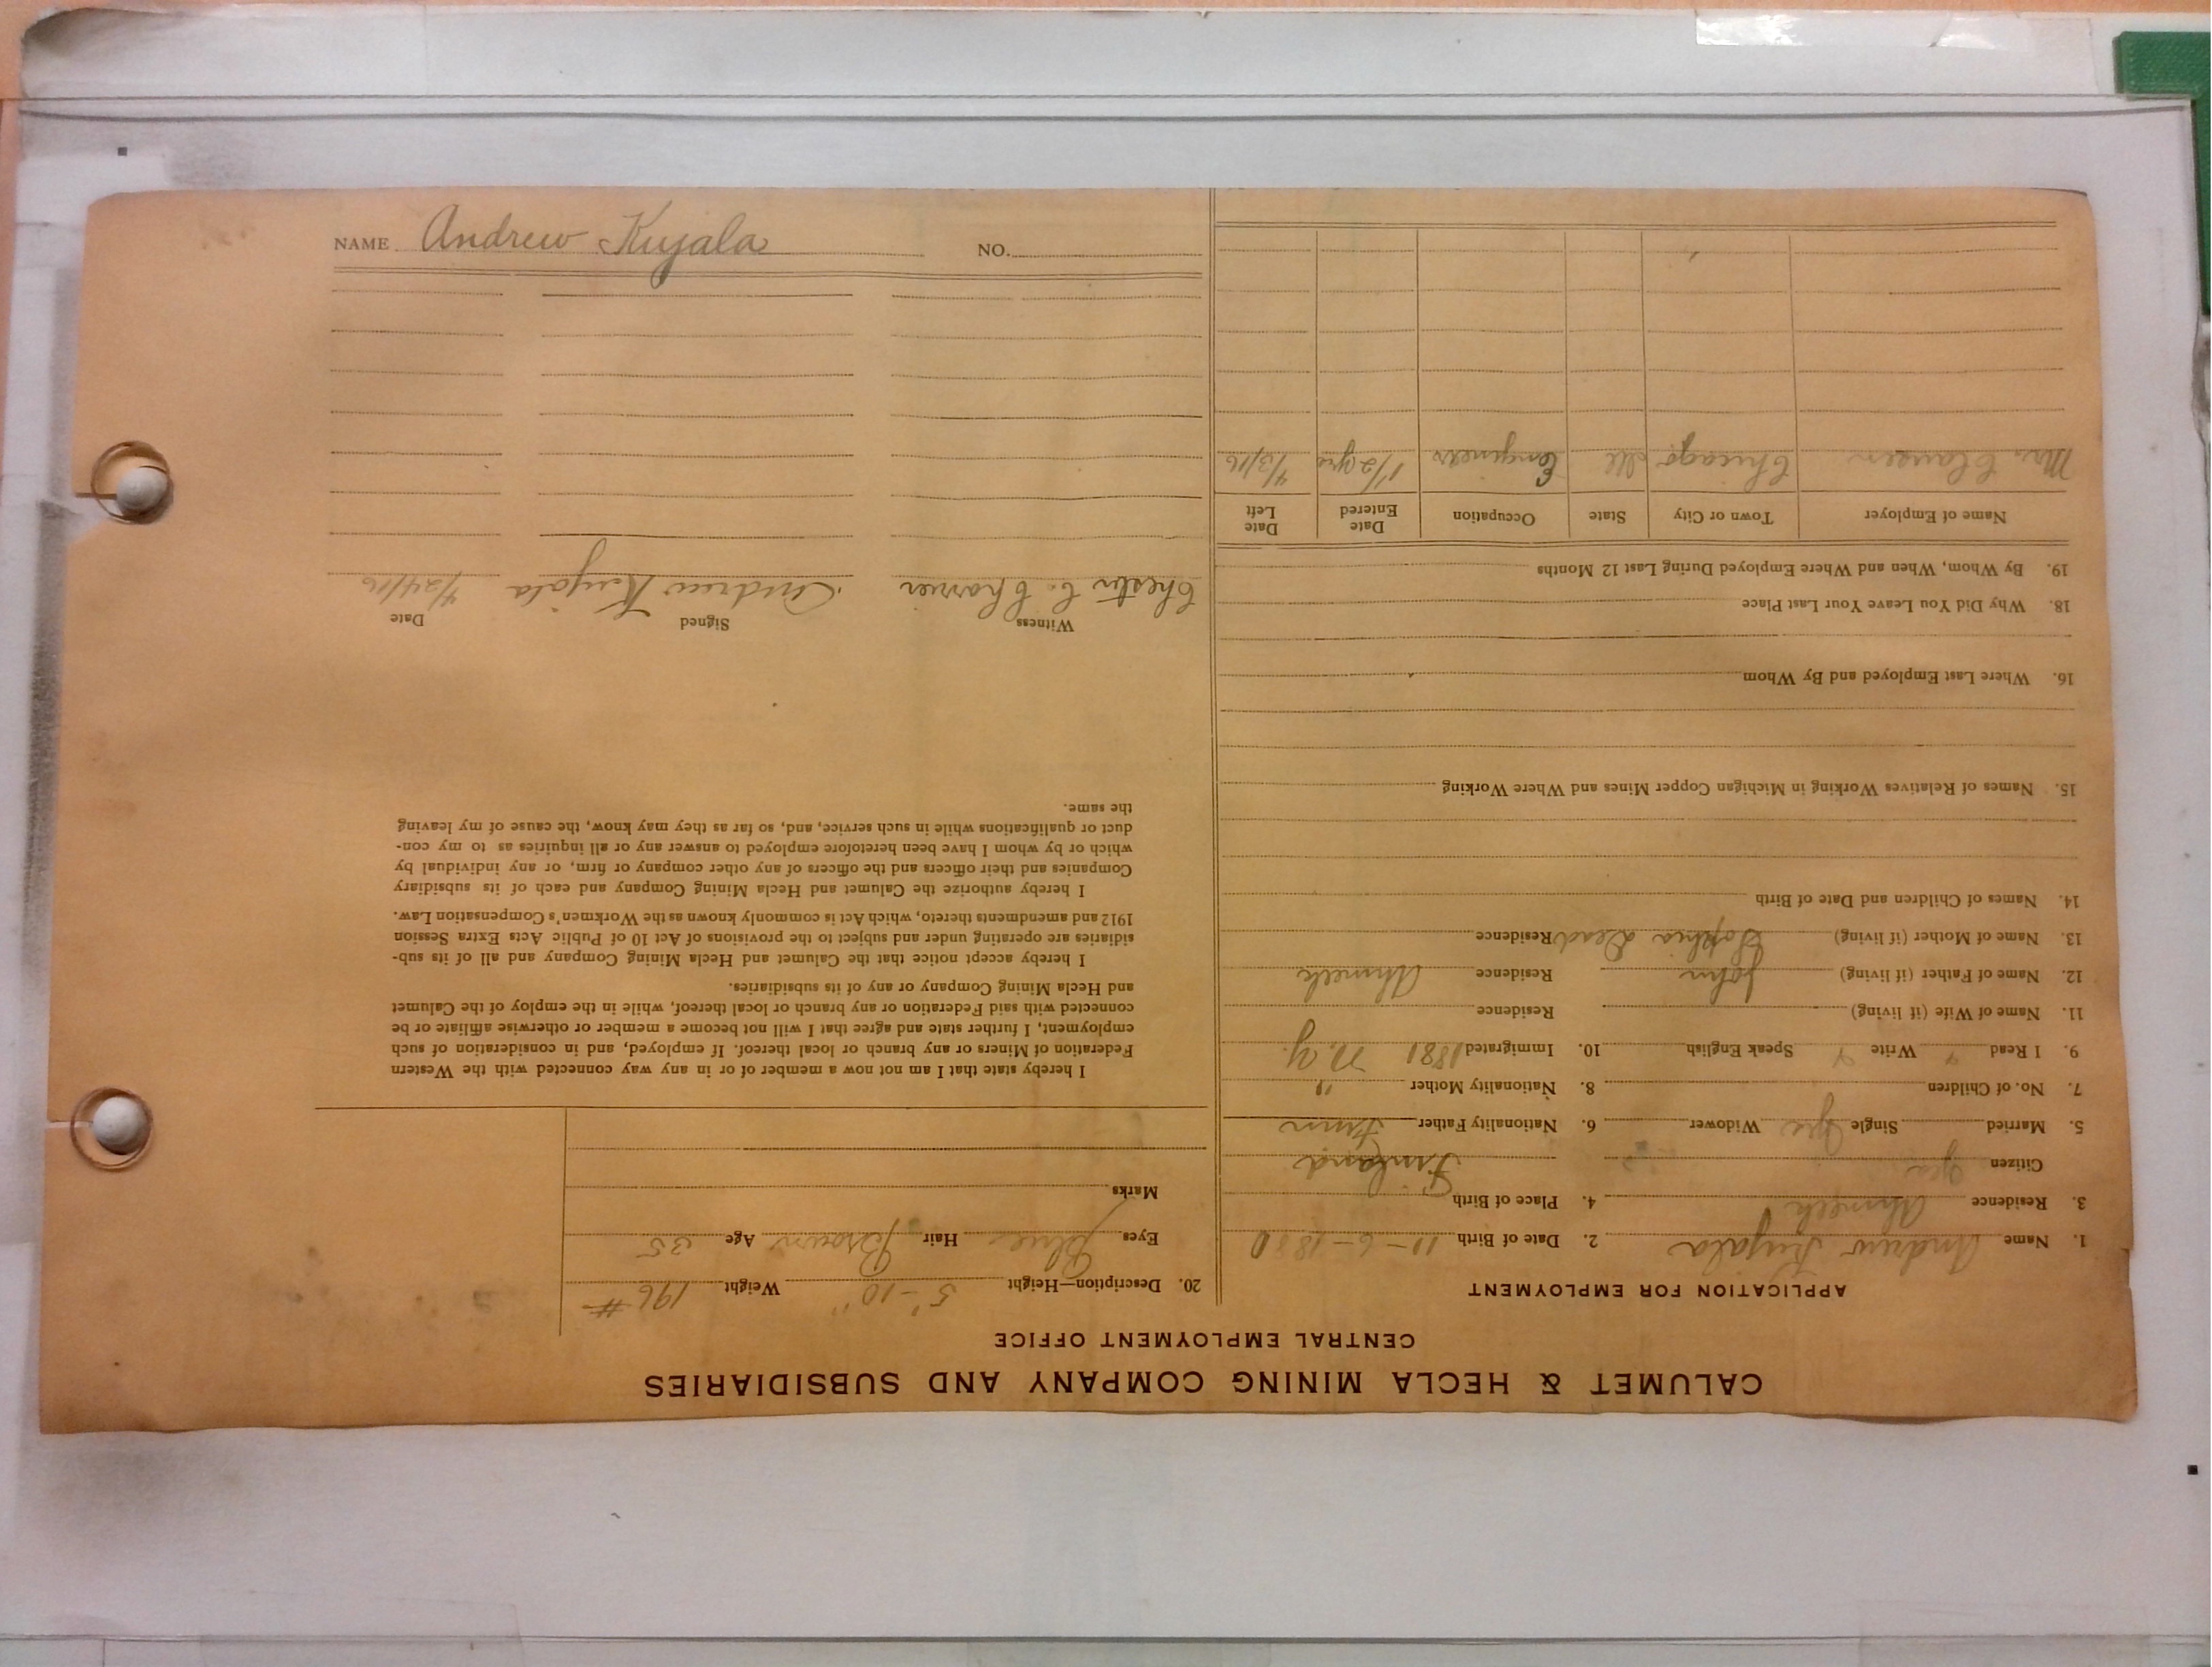 CALUMET & HECLA MINING COMPANY AND SUBSIDIARIES
CENTRAL EMPLOYMENT OFFICE
APPLICATION FOR EMPLOYMENT
1. Name Andrew Kujala 2. Date of Birth 11-6-1880
3. Residence Ahmeek 4. Place of Birth Finland
Citizen Yes
5. Married Single Yes Widower 6. Nationality Father Finn
7. No. of Children 8. Nationality Mother "
9. I Read Y Write Y Speak English 10. Immigrated 1881 N.Y.
11. Name of Wife (if living) Residence
12. Name of Father (if living) John Residence Ahmeek
13. Name of Mother (if living) Sophia Dead Residence
14. Names of Children and Date of Birth
15. Names of Relatives Working in Michigan Copper Mines and Where Working
16. Where Last Employed and By Whom
18. Why Did You Leave Your Last Place
19. By Whom, When and Where Employed During Last 12 Months
Name of Employer Town or City State Occupation Date Entered Date Left
Mrs. Clausen Chicago Ill Engineer 1 1/2 yrs 4/3/16
20. Description—Height 5'-10" Weight 196 #
Eyes Blue Hair Brown Age 35
Marks
I hereby state that I am not now a member of or in any way connected with the Western
Federation of Miners or any branch or local thereof. If employed, and in consideration of such
employment, I further state and agree that I will not become a member or otherwise affiliate or be
connected with said Federation or any branch or local thereof, while in the employ of the Calumet
and Hecla Mining Company or any of its subsidiaries.
I hereby accept notice that the Calumet and Hecla Mining Company and all of its sub-
sidiaries are operating under and subject to the provisions of Act 10 of Public Acts Extra Session
1912 and amendments thereto, which Act is commonly known as the Workmen's Compensation Law.
I hereby authorize the Calumet and Hecla Mining Company and each of its subsidiary
Companies and their officers and the officers of any other company or firm, or any individual by
which or by whom I have been heretofore employed to answer any or all inquiries as to my con-
duct or qualifications while in such service, and, so far as they may know, the cause of my leaving
the same.
Witness Signed Date
Chester C. Andrew Kujala 4/24/16
NAME Andrew Kujala NO.